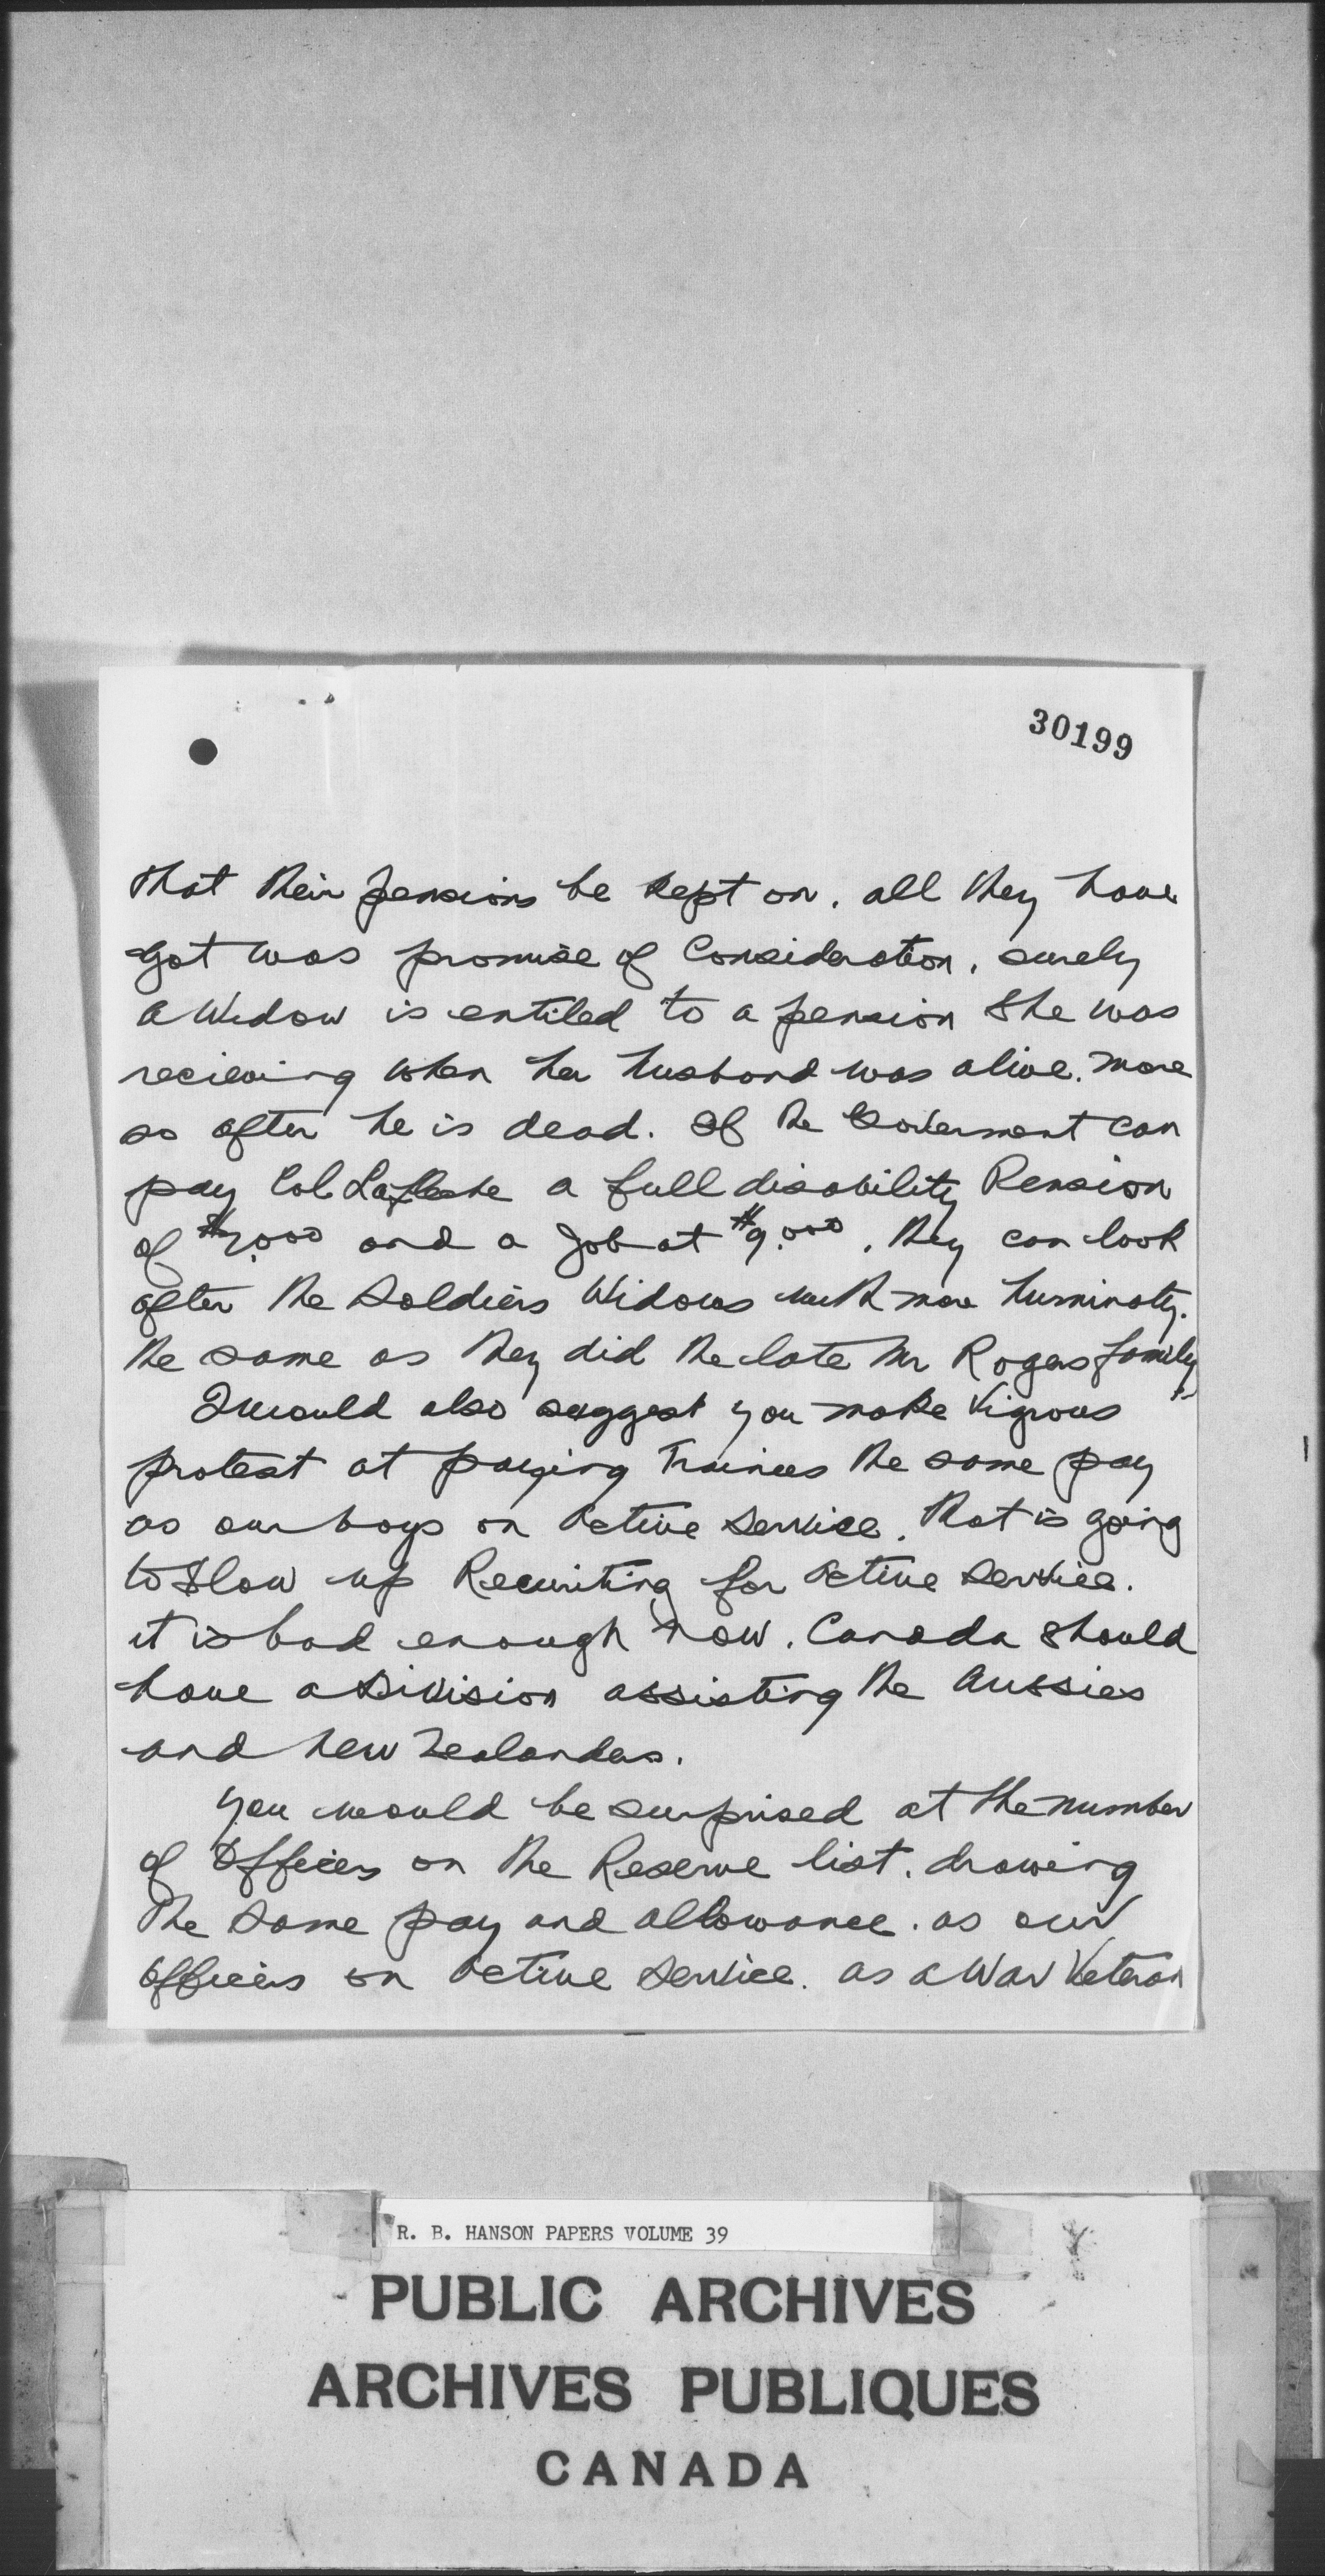 30199
that their pensions be kept on. all they have
got was promise of Consideration. surely
a Widow is entiled to a pension She was
recieving when her husband was alive. more
so after he is dead. If the Goverment can
pay Col Lafleshe a full disability Pension
of $ and a job at $9.000. they can look
after the Soldiers Widows with more huminaty.
the same as they did the late Mr Rogers family
I would also suggest you make Vigrous
protest at paying Trainees the same pay
as our boys on Active Service. that is going
to Slow up Recuriting for Active Service.
it is bad enough now. Canada should
have a Division assisting the Aussies
and New Zealanders.
you would be surprised at the number
of Officers on the Reserve list. drawing
the Same pay and allowance. as our
officers on Active Service. as a War Veteran
R. B. HANSON PAPERS VOLUME 39
PUBLIC ARCHIVES
ARCHIVES PUBLIQUES
CANADA